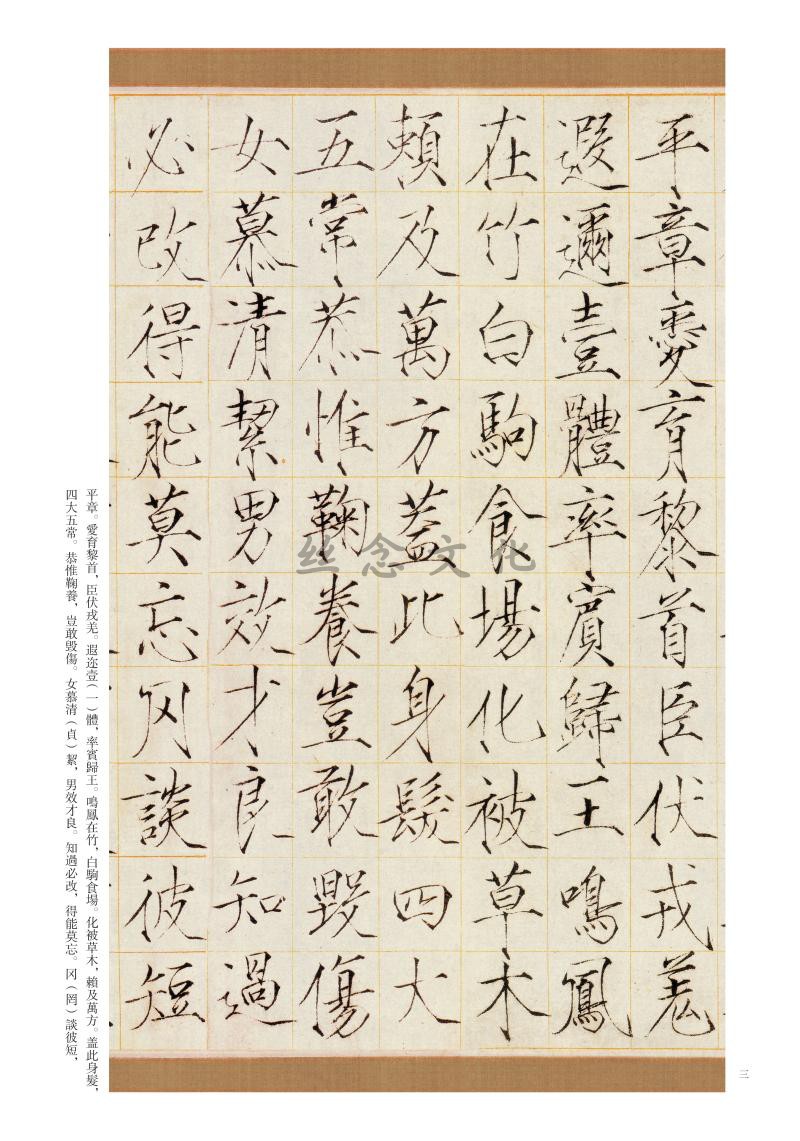 平章愛育黎首臣伏戎羌
遐邇壹體率賓歸王鳴鳳
在竹白駒食場化被草木
賴及萬方蓋此身髮四大
五常恭惟鞠養豈敢毀傷
女慕清絜男效才良知過
必改得能莫忘冈談彼短
平章。愛育黎首，臣伏戎羌。遐迩壹（一）體，率賓歸王。鳴鳳在竹，白駒食場。化被草木，賴及萬方。盖此身髮，
四大五常。恭惟鞠養，豈敢毀傷。女慕清（貞）絜，男效才良。知過必改，得能莫忘。冈（罔）談彼短，
丝念文化
三